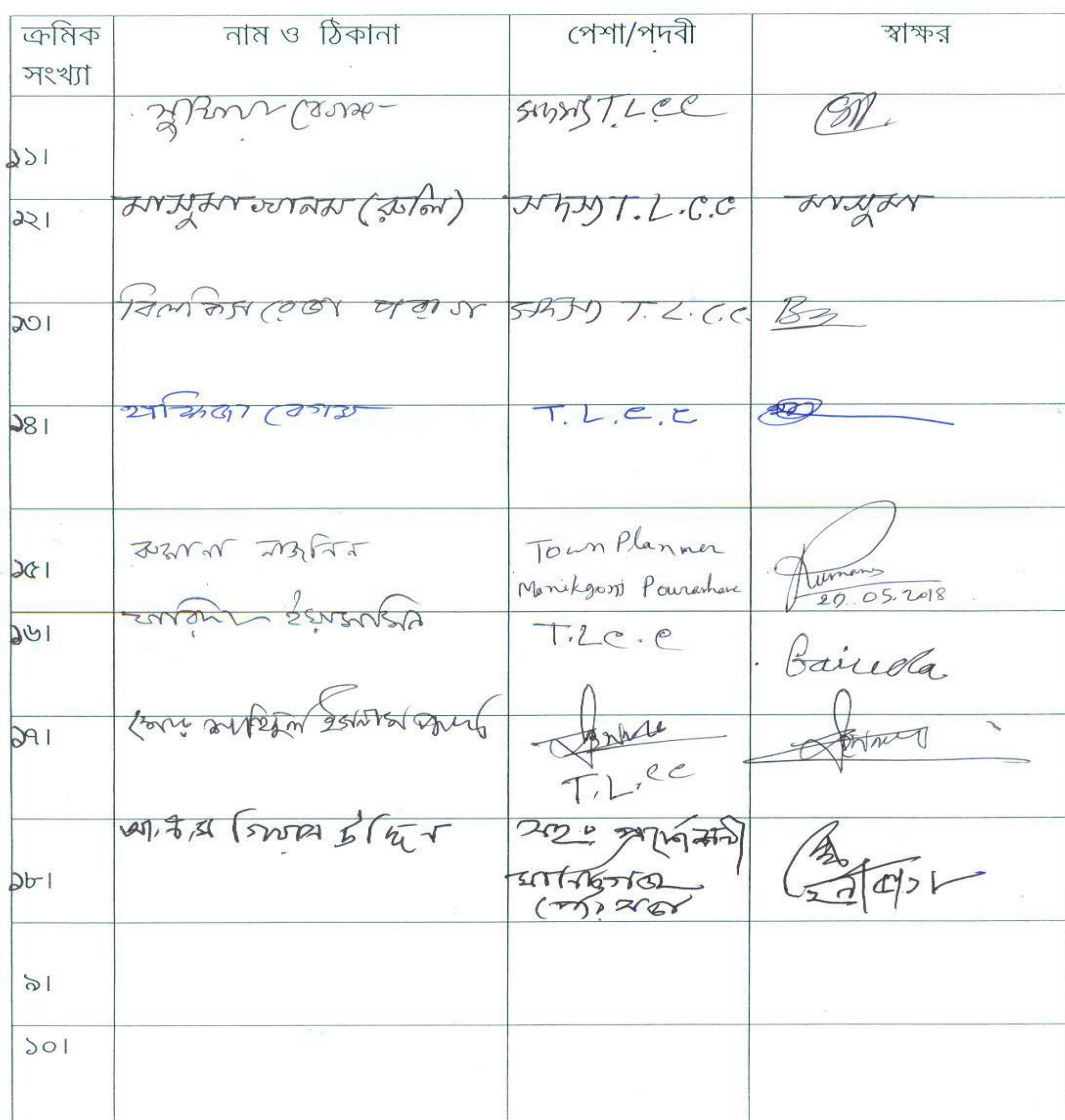 ক্রমিক সংখ্যা নাম ও ঠিকানা পেশা/পদবী স্বাক্ষর
১১। বেগম সদস্য T.L.C.C
১২। মাসুমা খানম (রুলি) সদস্য T.L.C.C মাসুমা
১৩। বিলকিস রেজা পরাগ সদস্য T.L.C.C.
১৪। হাফিজা বেগম T.L.C.C
১৫। রুমানা নাজনিন Town Planner
Manikgonj Pourashava Rumana
29.05.2018
১৬। ফারিদা ইয়াসমিন T.L.C.C Fairuda
১৭। ইসলাম
T.L.CC
১৮। আ,ক,ম গিয়াস উদ্দিন সহঃ প্রকৌশলী
মানিকগঞ্জ
পৌরসভা
৯।
১০।